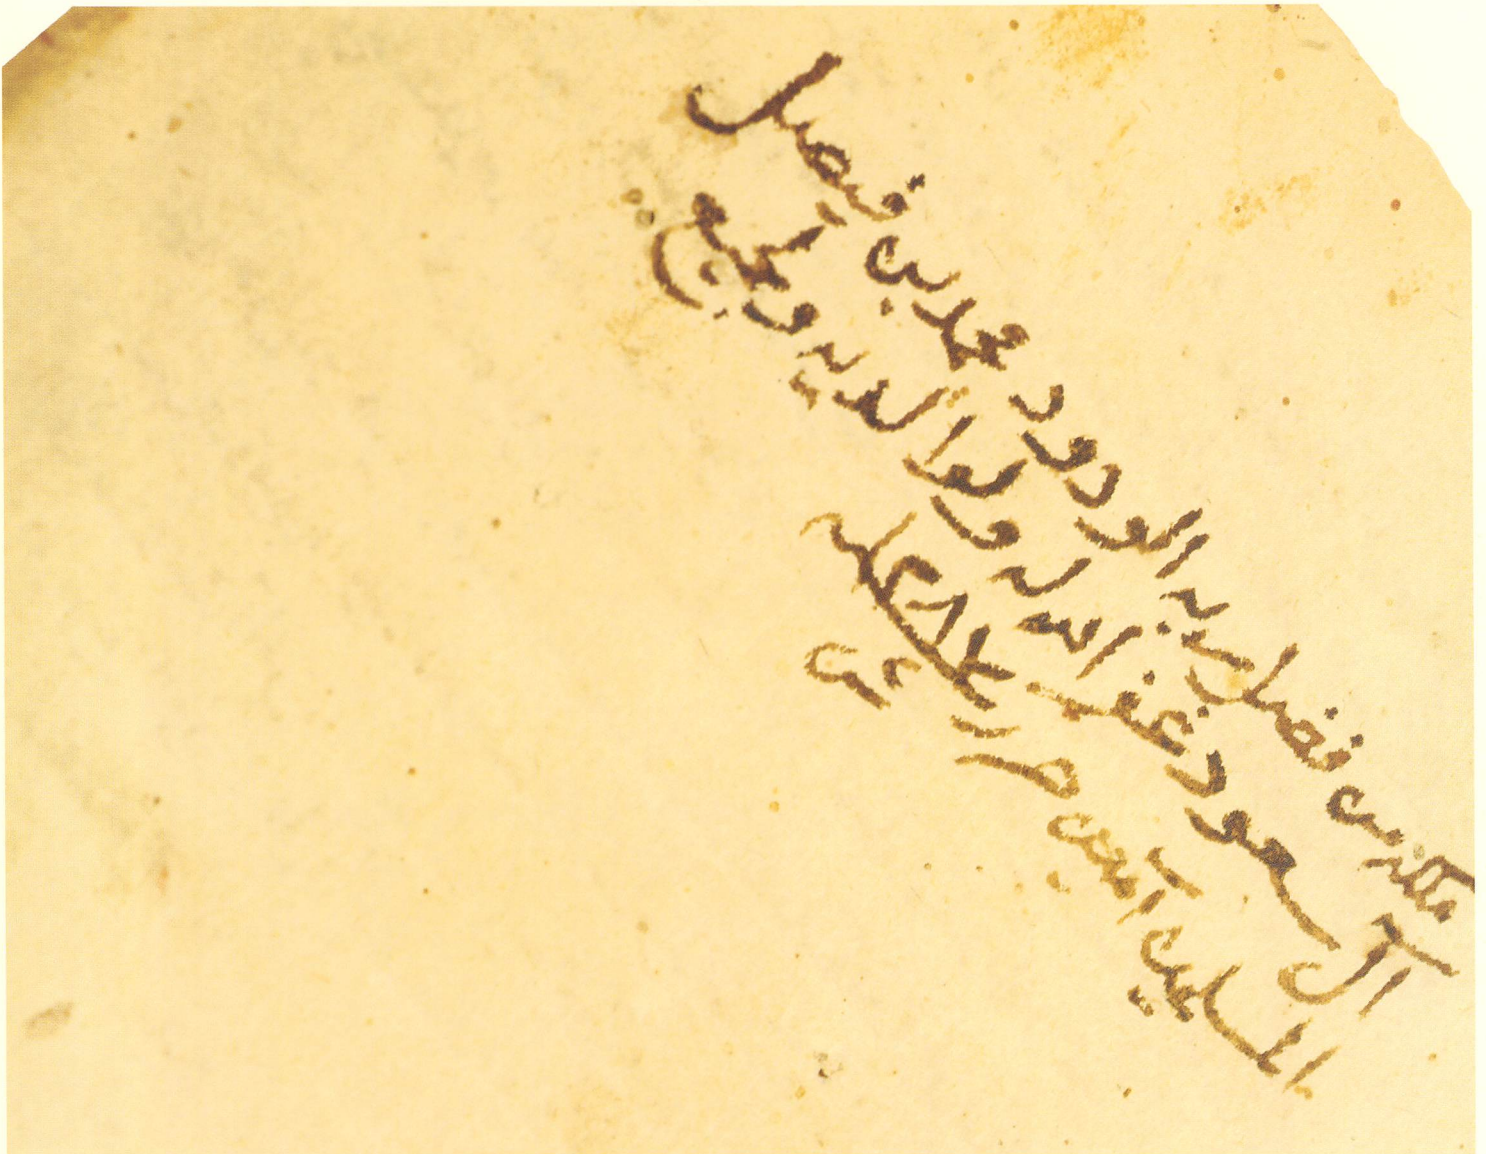 ملكه من فضل ربه الودود محمد بن فيصل
آل سعود غفر الله له ولوالديه ولجميع
المسلمين آمين حرر